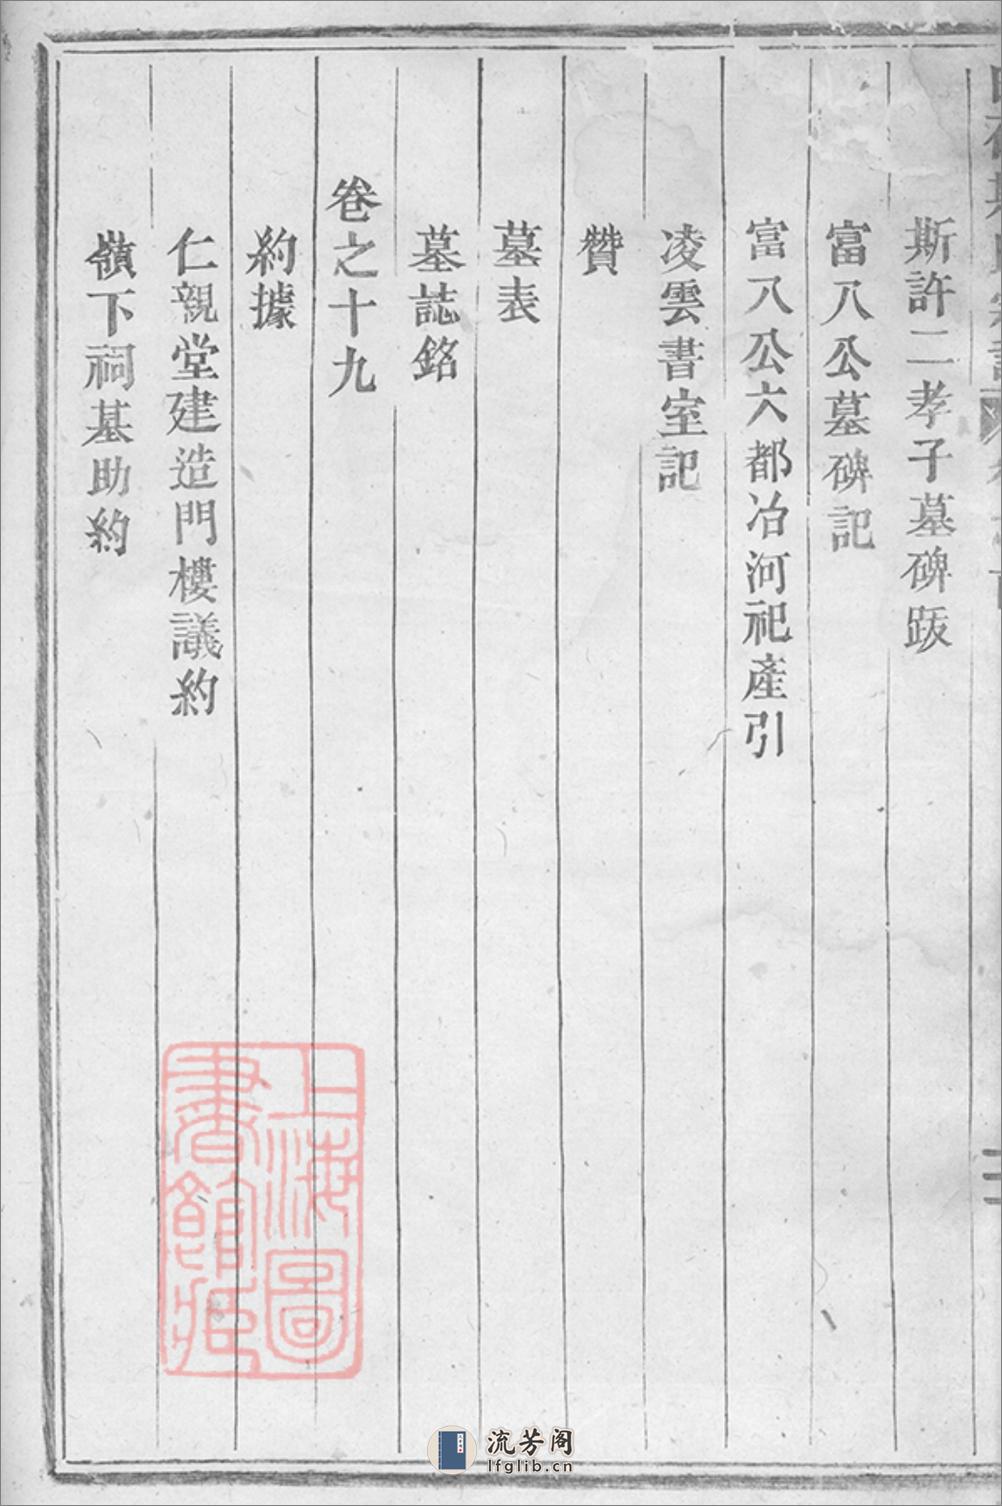 斯許二孝子墓碑跋
富八公墓碑記
富八公六都冶河祀產引
凌雲書室記
贊
墓表
墓誌銘
卷之十九
約據
仁親堂建造門樓議約
嶺下祠基助約
上海圖
書館藏
流芳阁
lfglib.cn